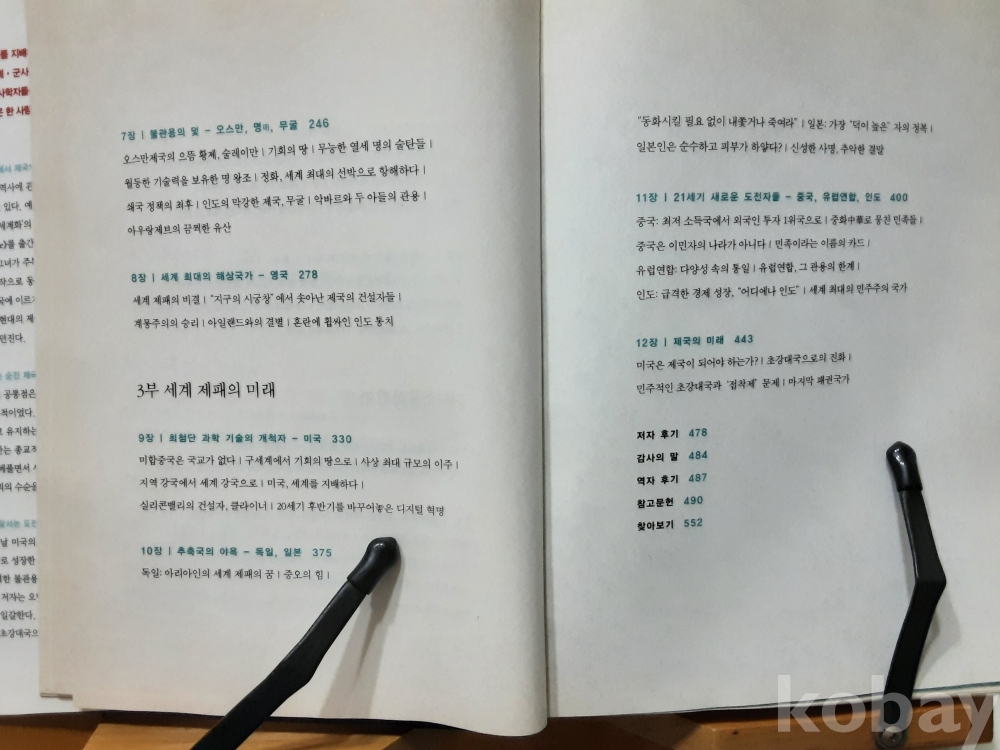 를 지배
사학자들
7장 | 불관용의 덫 - 오스만, 명明, 무굴 246
오스만제국의 으뜸 황제, 술레이만 | 기회의 땅 | 무능한 열세 명의 술탄들 |
월등한 기술력을 보유한 명 왕조 | 정화, 세계 최대의 선박으로 항해하다 |
쇄국 정책의 최후 | 인도의 막강한 제국, 무굴 | 악바르와 두 아들의 관용 |
아우랑제브의 끔찍한 유산
8장 | 세계 최대의 해상국가 - 영국 278
세계 제패의 비결 | "지구의 시궁창"에서 솟아난 제국의 건설자들 |
계몽주의의 승리 | 아일랜드와의 결별 | 혼란에 휩싸인 인도 통치
3부 세계 제패의 미래
9장 | 최첨단 과학 기술의 개척자 - 미국 330
미합중국은 국교가 없다 | 구세계에서 기회의 땅으로 | 사상 최대 규모의 이주 |
지역 강국에서 세계 강국으로 | 미국, 세계를 지배하다 |
실리콘밸리의 건설자, 클라이너 | 20세기 후반기를 바꾸어놓은 디지털 혁명
10장 | 추축국의 야욕 - 독일, 일본 375
독일: 아리아인의 세계 제패의 꿈 | 증오의 힘 |
"동화시킬 필요 없이 내쫓거나 죽여라" | 일본: 가장 "덕이 높은" 자의 정복 |
일본인은 순수하고 피부가 하얗다? | 신성한 사명, 추악한 결말
11장 | 21세기 새로운 도전자들 - 중국, 유럽연합, 인도 400
중국: 최저 소득국에서 외국인 투자 1위국으로 | 중화中華로 뭉친 민족들 |
중국은 이민자의 나라가 아니다 | 민족이라는 이름의 카드 |
유럽연합: 다양성 속의 통일 | 유럽연합, 그 관용의 한계 |
인도: 급격한 경제 성장, "어디에나 인도" | 세계 최대의 민주주의 국가
12장 | 제국의 미래 443
미국은 제국이 되어야 하는가? | 초강대국으로의 진화 |
민주적인 초강대국과 '접착제' 문제 | 마지막 패권국가
저자 후기 478
감사의 말 484
역자 후기 487
참고문헌 490
찾아보기 552
kobay